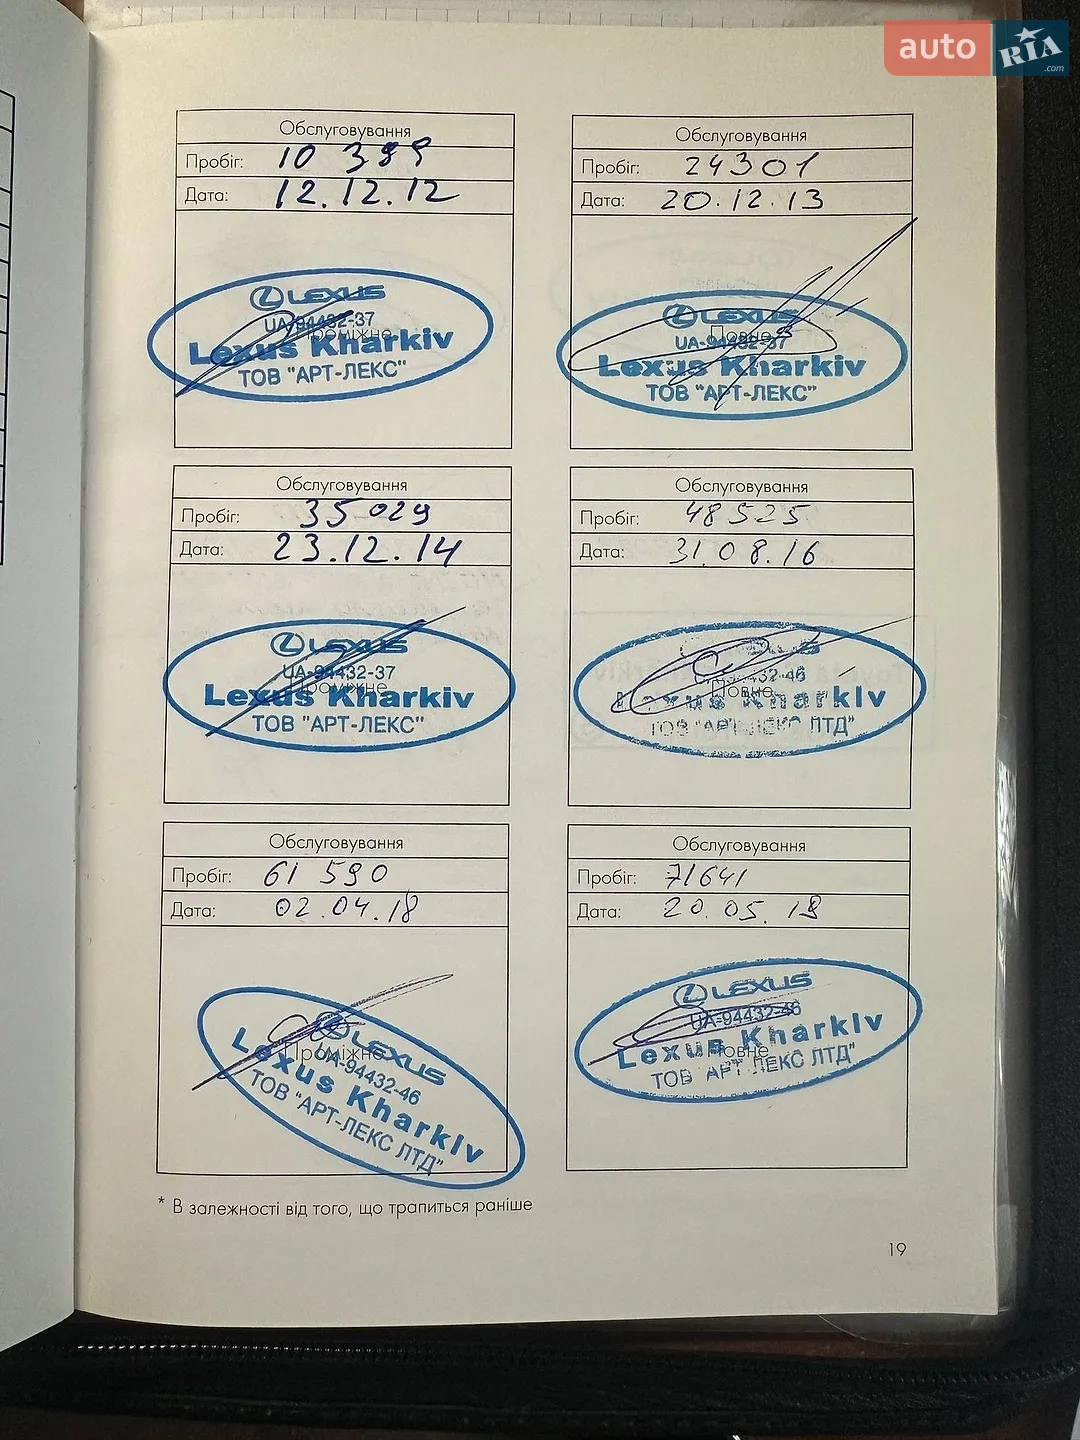 auto RIA.com
Обслуговування
Пробіг: 10 399
Дата: 12.12.12
LEXUS
UA-94432-37
Проміжне
Lexus Kharkiv
ТОВ "АРТ-ЛЕКС"
Обслуговування
Пробіг: 24301
Дата: 20.12.13
LEXUS
Повне
UA-94432-37
Lexus Kharkiv
ТОВ "АРТ-ЛЕКС"
Обслуговування
Пробіг: 35 029
Дата: 23.12.14
LEXUS
UA-94432-37
Проміжне
Lexus Kharkiv
ТОВ "АРТ-ЛЕКС"
Обслуговування
Пробіг: 48525
Дата: 31.08.16
Повне
Lexus Kharkiv
ТОВ "АРТ-ЛЕКС ЛТД"
Обслуговування
Пробіг: 61 590
Дата: 02.04.18
LEXUS
Проміжне
UA-94432-46
Lexus Kharkiv
ТОВ "АРТ-ЛЕКС ЛТД"
Обслуговування
Пробіг: 71641
Дата: 20.05.19
LEXUS
UA-94432-46
Lexus Kharkiv
Повне
ТОВ "АРТ-ЛЕКС ЛТД"
* В залежності від того, що трапиться раніше
19